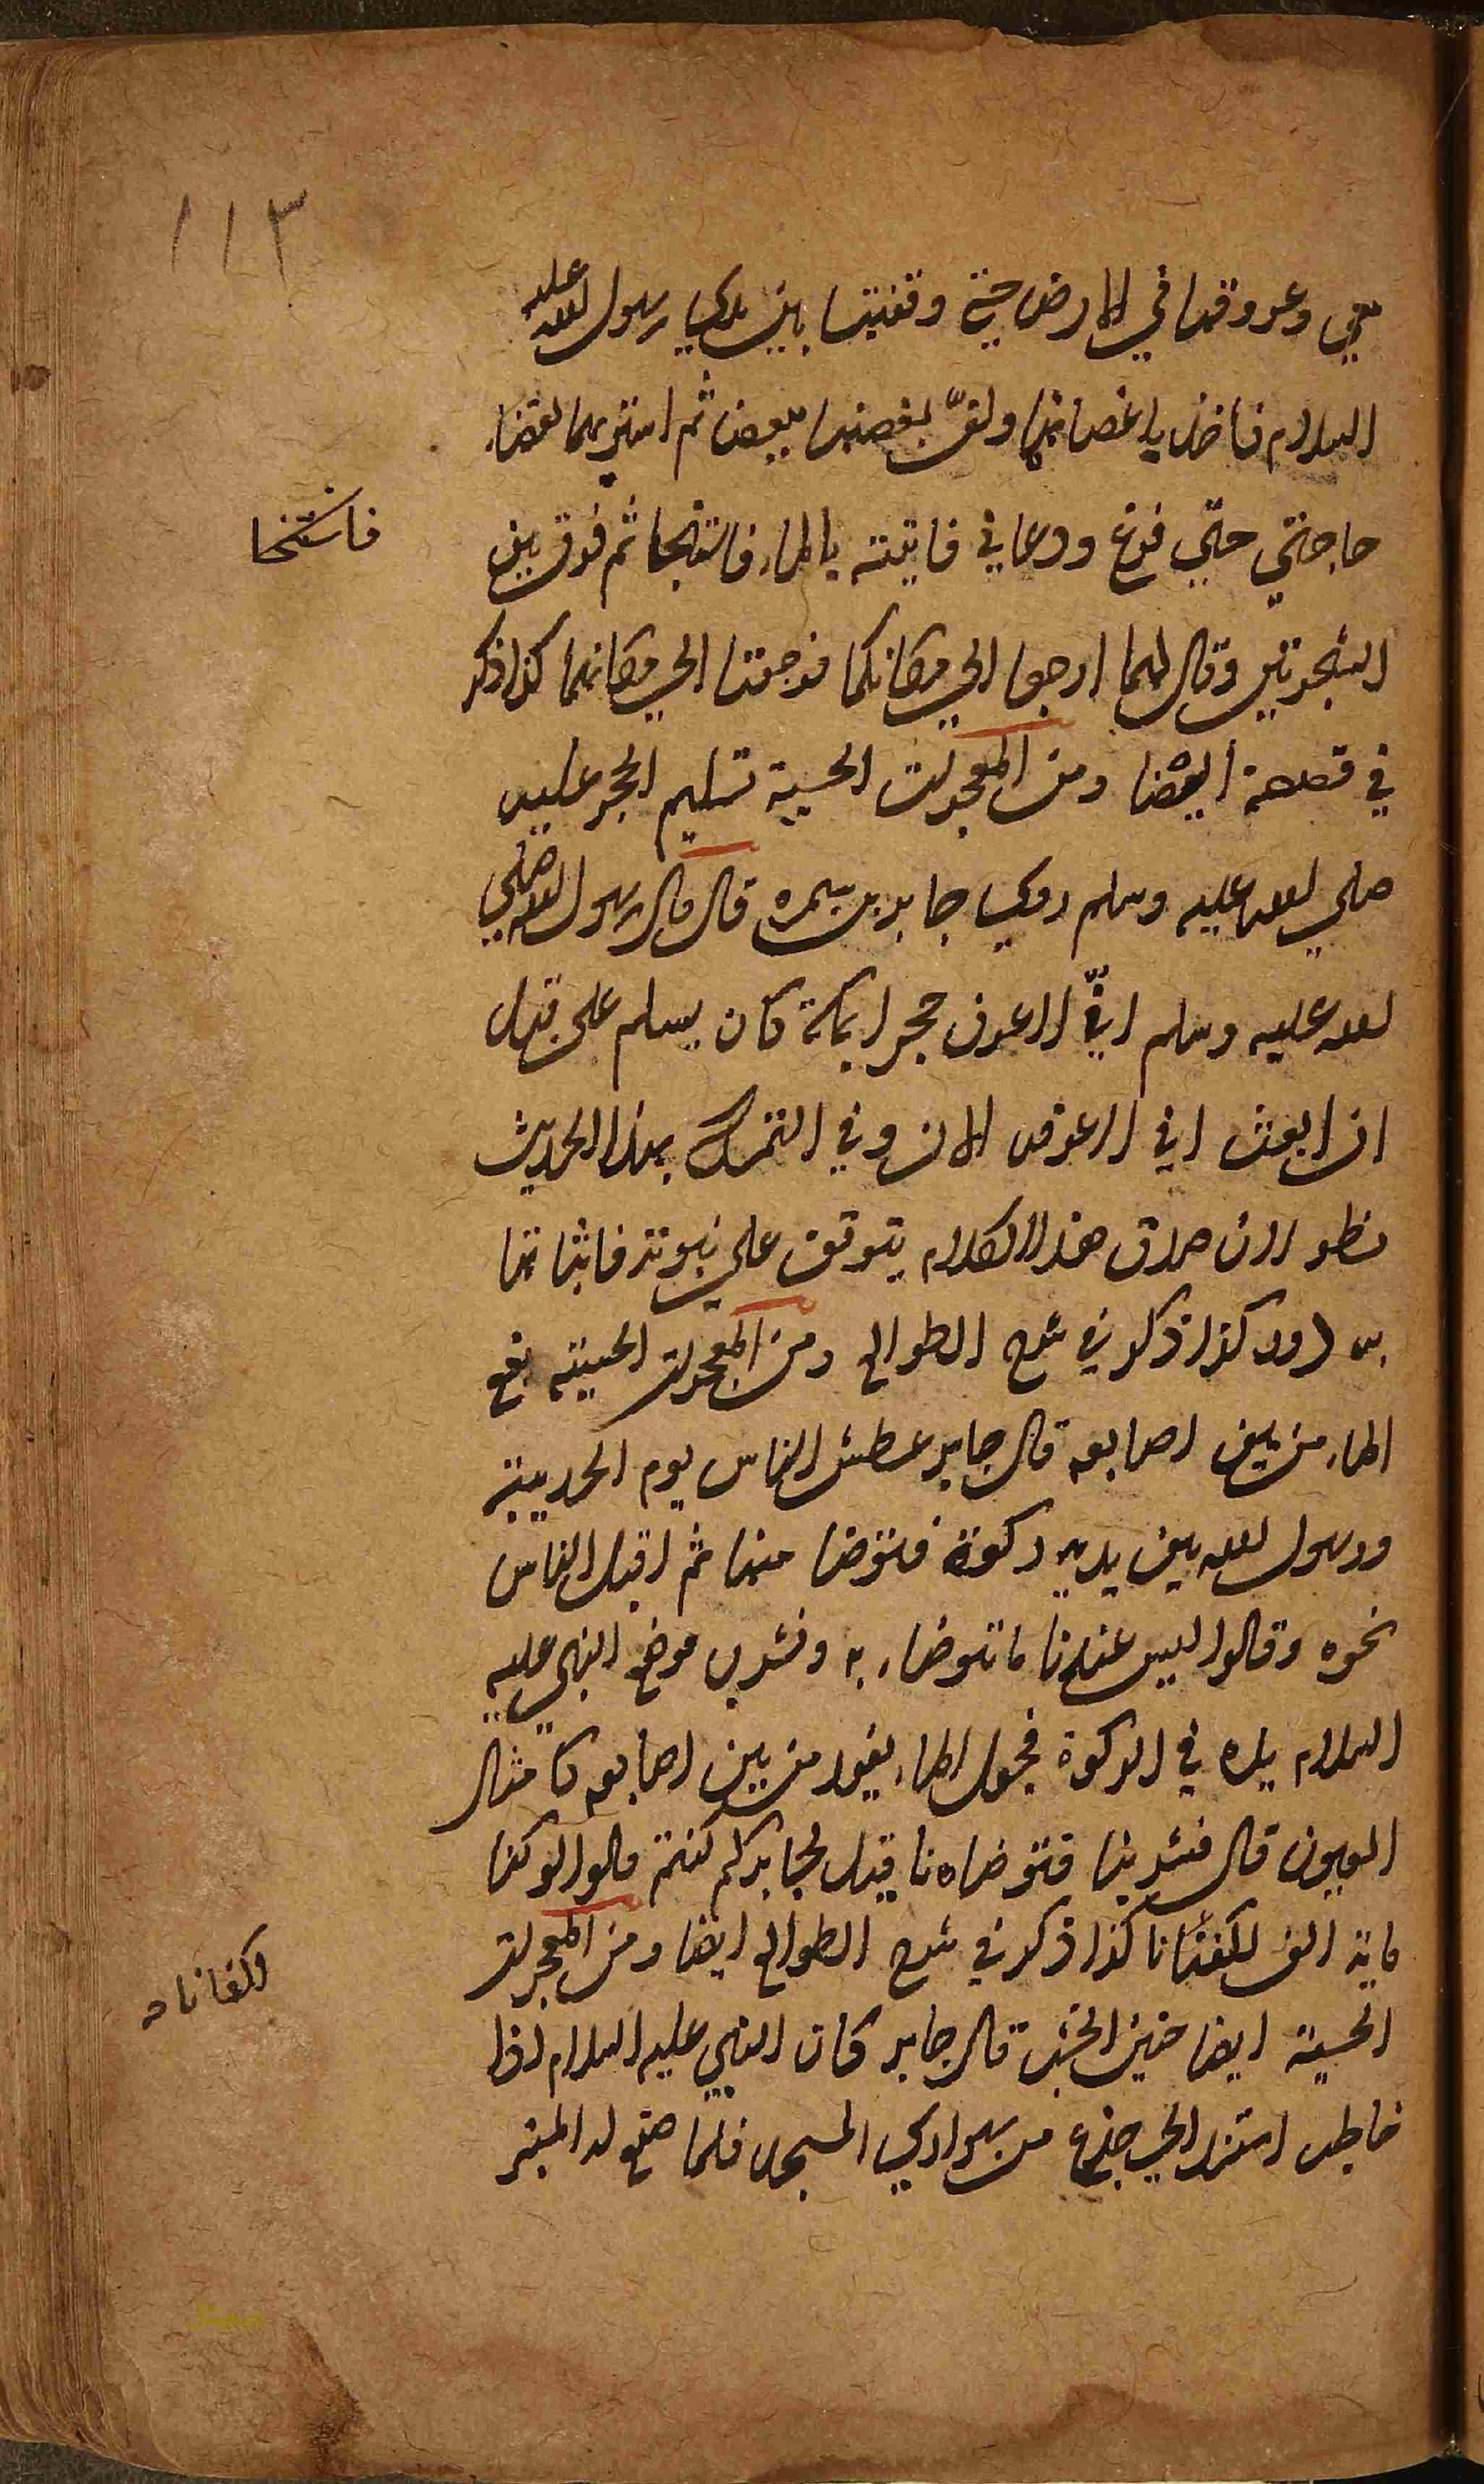 ١١٣
معي وعروقها في الارض حتي وقفتا بين يدي رسول الله عليه
السلام فاخذ باغصانها ولفّ بغصنها ببعض ثم استتر بهما لقضاء
حاجتي حتي فرغ ودعاني فاتيته بالماء فاستنجا ثم فرق بين
فاستنجا
الشجرتين وقال لهما ارجعا الي مكانكما فرجعتا الي مكانهما كذا ذكر
في قصصه ايضا ومن المعجزات الحسية تسليم الحجر عليه
صلي الله عليه وسلم روي جابر بن سمره قال قال رسول الله صلي
الله عليه وسلم انيّ لاعرف حجرا بمكة كان يسلم علي قبل
ان ابعث اني لاعرفه الان وفي التمسك بهذا الحديث
نظر لان صدق هذا الكلام يتوقف علي نبوته فاثباتها
به دور كذا ذكر في شرح الطوالع ومن المعجزات الحسيته نبع
الماء من بين اصابعه قال جابر عطش الناس يوم الحديبية
ورسول الله بين يديه ركوة فتوضا منها ثم اقبل الناس
نحوه وقالوا ليس عندنا ما نتوضاء به ونشرب فوضع النبي عليه
السلام يده في الركوة فجعل الماء يفور من بين اصابعه كامثال
العيون قال فشربنا فتوضاءنا قيل لجابر كم كنتم قالوا لو كنا
ماية الف لكفتانا كذا ذكر في شرح الطوالع ايضا ومن المعجزات
لكفانا
الحسية ايضا حنين الخشب قال جابر كان النبي عليه السلام اذا
خاطب استند الي جذع من سواري المسجد فلما صنع له المنبر